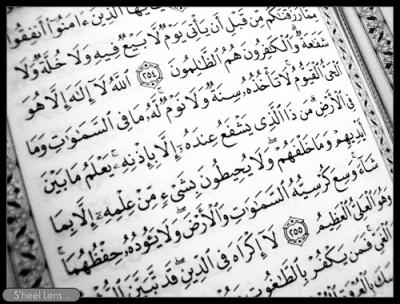 يَٰٓأَيُّهَا ٱلَّذِينَ ءَامَنُوٓا۟ أَنفِقُوا۟
مِمَّا رَزَقْنَٰكُم مِّن قَبْلِ أَن يَأْتِىَ يَوْمٌ لَّا بَيْعٌ فِيهِ وَلَا خُلَّةٌ وَلَا
شَفَٰعَةٌ وَٱلْكَٰفِرُونَ هُمُ ٱلظَّٰلِمُونَ ٢٥٤ ٱللَّهُ لَآ إِلَٰهَ إِلَّا هُوَ
ٱلْحَىُّ ٱلْقَيُّومُ لَا تَأْخُذُهُۥ سِنَةٌ وَلَا نَوْمٌ لَّهُۥ مَا فِى ٱلسَّمَٰوَٰتِ وَمَا
فِى ٱلْأَرْضِ مَن ذَا ٱلَّذِى يَشْفَعُ عِندَهُۥٓ إِلَّا بِإِذْنِهِۦ يَعْلَمُ مَا بَيْنَ
أَيْدِيهِمْ وَمَا خَلْفَهُمْ وَلَا يُحِيطُونَ بِشَىْءٍ مِّنْ عِلْمِهِۦٓ إِلَّا بِمَا
شَآءَ وَسِعَ كُرْسِيُّهُ ٱلسَّمَٰوَٰتِ وَٱلْأَرْضَ وَلَا يَـُٔودُهُۥ حِفْظُهُمَا
وَهُوَ ٱلْعَلِىُّ ٱلْعَظِيمُ ٢٥٥ لَآ إِكْرَاهَ فِى ٱلدِّينِ قَد تَّبَيَّنَ
ٱلْغَىِّ فَمَن يَكْفُرْ بِٱلطَّٰغُوتِ
S'heel Lens ..